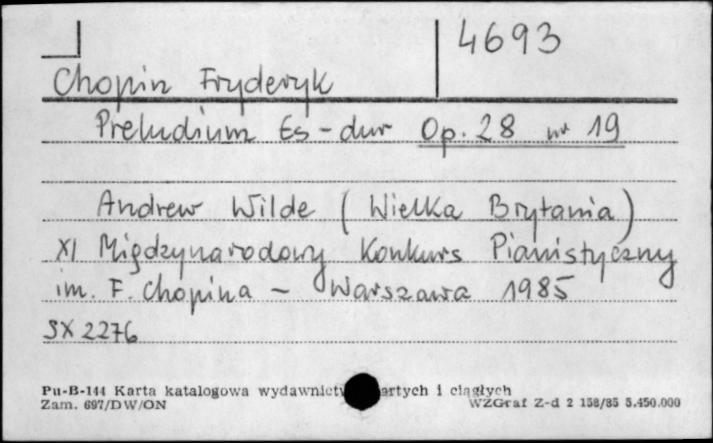 4693
Chopin Fryderyk
Preludium Es-dur Op. 28 nr 19
Andrew Wilde (Wielka Brytania)
XI Międzynarodowy Konkurs Pianistyczny
im. F. Chopina - Warszawa 1985
SX 2276
Pu-B-144 Karta katalogowa i ciągłych
Zam. 697/DW/ON WZGraf Z-d 2 158/85 5.450.000